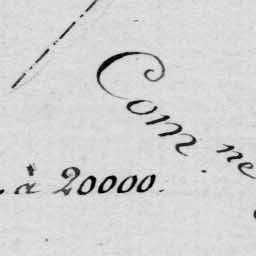 Com.ne
à 20000.